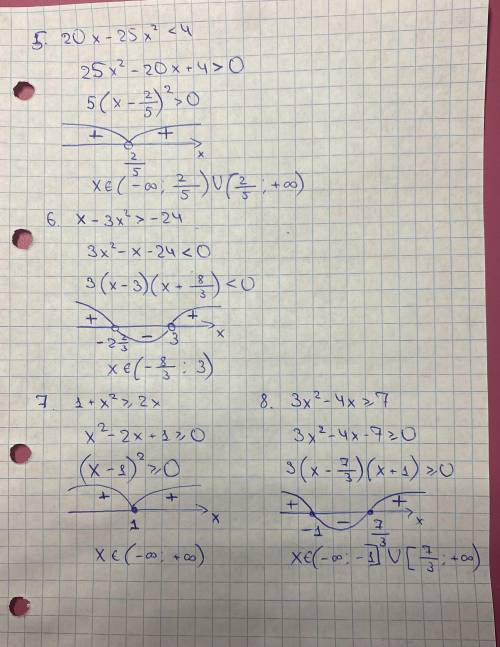 5. 20x - 25x² < 4
25x² - 20x + 4 > 0
5(x - 2/5)² > 0
+ +
2/5 x
x ∈ (-∞; 2/5) ∪ (2/5; +∞)
6. x - 3x² > -24
3x² - x - 24 < 0
3(x - 3)(x + 8/3) < 0
+ - +
-2 2/3 3 x
x ∈ (-8/3; 3)
7. 1 + x² ≥ 2x
x² - 2x + 1 ≥ 0
(x - 1)² ≥ 0
+ +
1 x
x ∈ (-∞; +∞)
8. 3x² - 4x ≥ 7
3x² - 4x - 7 ≥ 0
3(x - 7/3)(x + 1) ≥ 0
+ - +
-1 7/3 x
x ∈ (-∞; -1] ∪ [7/3; +∞)